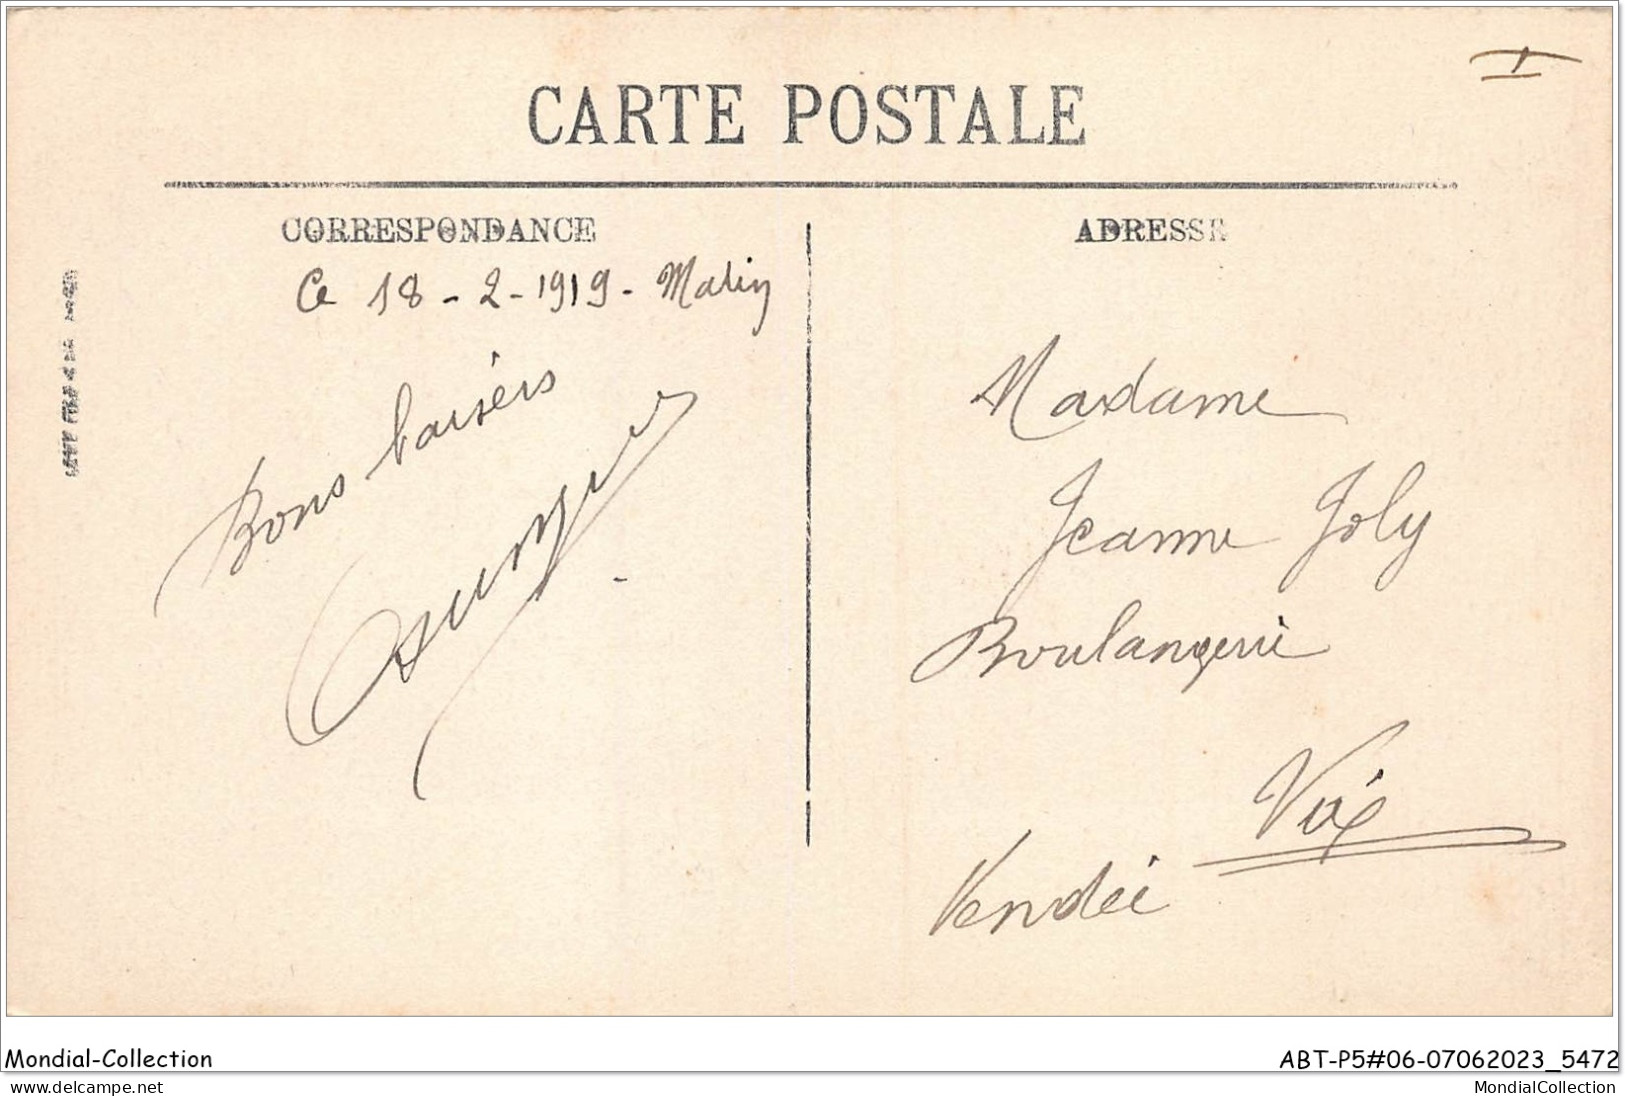 CARTE POSTALE
CORRESPONDANCE
ADRESSE
Ce 18-2-1919- Matin
Bons baisers
Madame
Jeanne Joly
Boulangerie
Vix
Vendée
Mondial-Collection
ABT-P5#06-07062023_5472
www.delcampe.net
MondialCollection